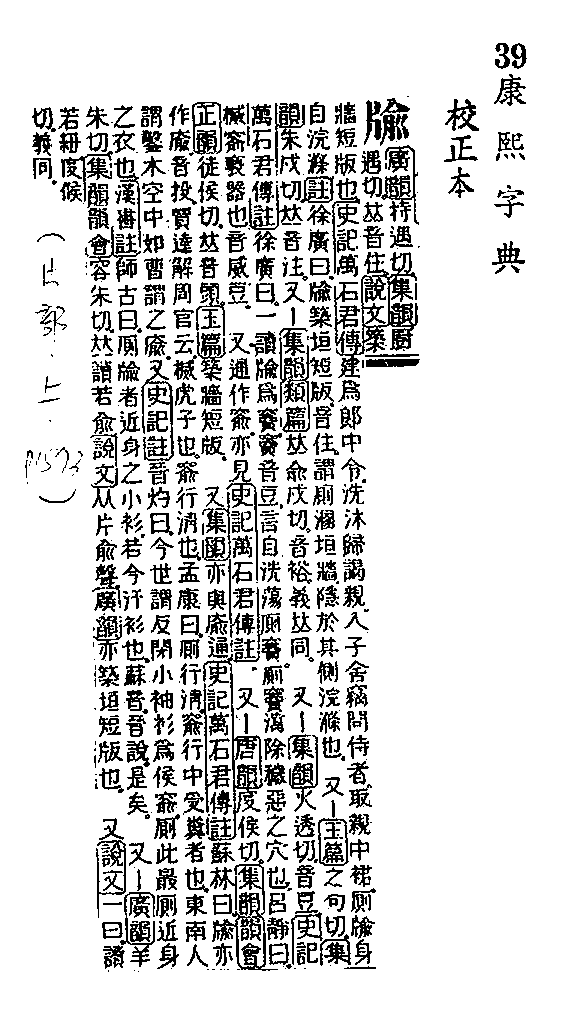 39
康熙字典
校正本
牏
廣韻持遇切集韻廚
遇切𠀤音住說文築
牆短版也史記萬石君傳建爲郎中令洗沐歸謁親入子舍竊問侍者取親中裙廁牏身
自浣滌註徐廣曰牏築垣短版音住謂廁溷垣牆隱於其側浣滌也又一玉篇之句切集
韻朱戍切𠀤音注又一集韻類篇𠀤俞戍切音裕義𠀤同又一集韻火透切音豆史記
萬石君傳註徐廣曰一讀牏爲竇竇音豆言自洗蕩廁竇廁竇瀉除穢惡之穴也呂靜曰
楲窬褻器也音威豆又通作窬亦見史記萬石君傳註又一唐韻度侯切集韻韻會
正韻徒侯切𠀤音頭玉篇築牆短版又集韻亦與廠通史記萬石君傳註蘇林曰牏亦
作廠音投賈逵解周官云楲虎子也窬行淸也孟康曰廁行淸窬行中受糞者也東南人
謂鑿木空中如曹謂之廠又史記註晉灼曰今世謂反閉小袖衫爲侯窬廁此最廁近身
之衣也漢書註師古曰廁牏者近身之小衫若今汗衫也蘇音晉說是矣又一廣韻羊
朱切集韻韻會容朱切𠀤讀若俞說文从片俞聲廣韻亦築垣短版也又說文一曰讀
若紐度侯
切義同